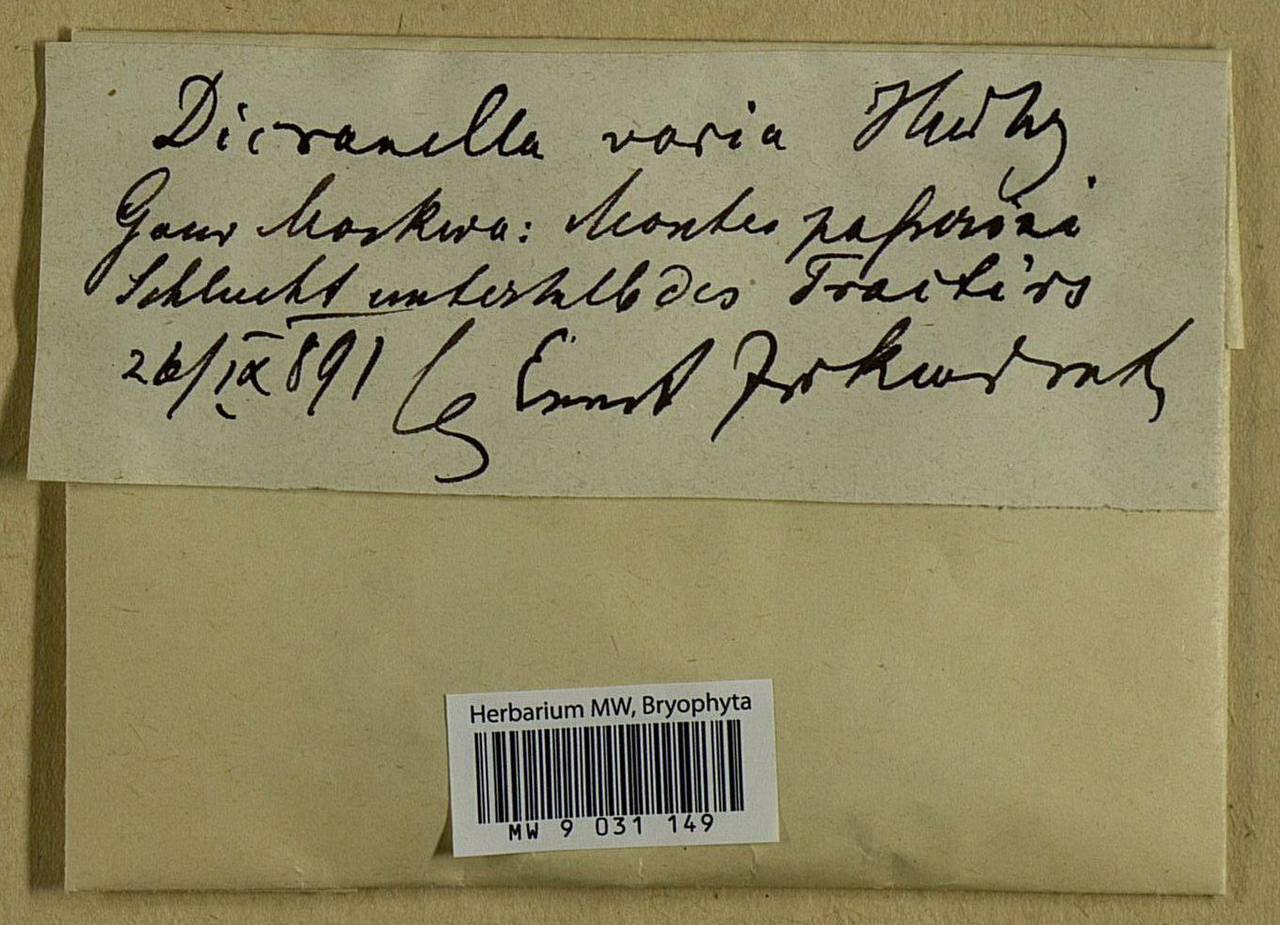 Dicranella varia Hedwg
Gouv Moskwa: Montes paßerini
Schlucht unterhalb des Tractirs
26/IX 891 Ernst
Herbarium MW, Bryophyta
MW 9 031 149